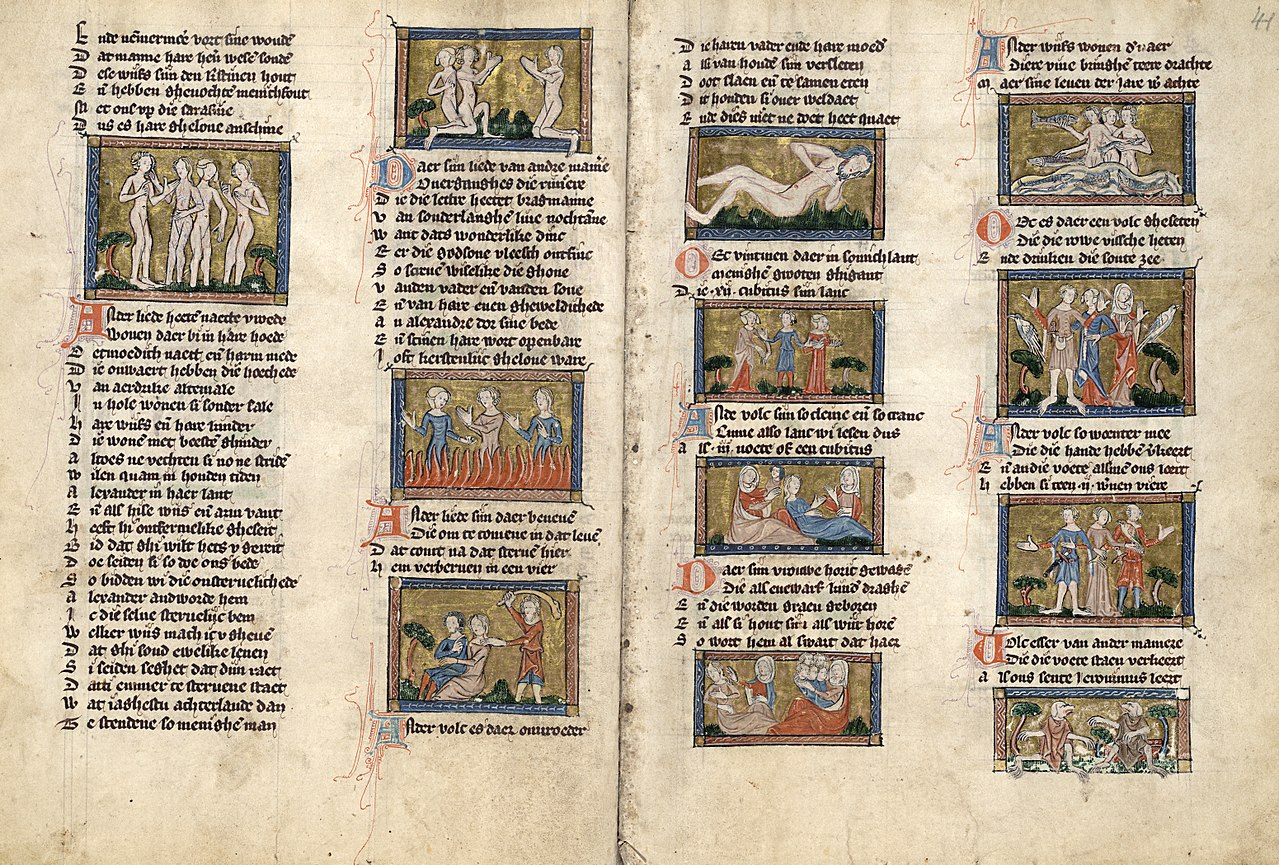 Ende
Dat manne hare
Dese wijfs sijn den kerstinen hout
Eñ hebben ghenochte menichfout
Met ons vp die sarasine
Dus es hare ghelone anschine
Ander liede heete naecte vroede
Wonen daer bi in hare hoede
Oetmoedich naect eñ harm mede
Die onwaert hebben die hoechede
Van aerdrike altemale
In hole wonen si sonder sale
Hare wijfs eñ hare kinder
Die wonē met beeste ghinder
Altoes ne vechten si no ne stridē
Wilen quam in houden tiden
Alexander in haer lant
Eñ als hise wijs eñ arm vant
Heeft hi ontfermelike gheseit
Bid dat ghi wilt hets v gereit
Doe seiden si so doe ons bede
So bidden wi die onsteruelichede
Alexander andworde hem
Ic die selue sterueliic bem
Welker wijs mach ic v gheuē
Dat ghi soud ewelike leuen
Si seiden seghet dat dijn raet
Dattu emmer te steruene staet
Wat iaghestu achterlande dan
Te stendene so menighē man
Daer sijn liede van andre maniere
Ouerganghes die riuiere
Die die lettre heetet bragmanne
Van sonderlanghē liue nochtāne
Want dats wonderlike dinc
Eer die godsone vleesch ontfinc
So screuē wiselike die ghone
Vanden vader eñ vanden sone
Eñ van hare euen gheweldichede
An alexandre dor sine bede
Eñ scinen hare wort openbare
Ioft kerstenliic ghelone ware
Ander liede sijn daer beneuē
Die om te comene in dat leuē
Dat comt na dat steruē hier
Hem verbernen in een vier
Ander volc es daer onvroeder
Die haren vader ende hare moed
Als van houde sijn versleten
Doot slaen eñ te samen eten
Dit houden si ouer weldaet
Ende dies niet ne doet heet quaet
Oec vintmen daer in sonich lant
Menighē groten ghigant
Die .xij. cubitus sijn lanc
Ander volc sijn so cleine eñ so cranc
Cume also lanc wi lesen dus
Als .iij. voete of een cubitus
Daer sijn vrouwe horic gewagē
Die als enewarf kind draghē
Eñ die worden graeu geboren
Eñ als si hout sijn als wijt horē
So wort hem al swart dat haer
Ander wijfs wonen daer
Diere viue bringhē teere drachte
Maer sine leuen der iare
Oec es daer een volc gheseten
Die die rowe vissche heten
Ende drinken die soute zee
Ander volc so woenter mee
Die die hande hebbē verkeert
Eñ an die voete alsmē ons leert
Hebben si teen .ij. viere
Volc esser van ander maniere
Die die voete staen verkeert
Als ons sente Ieronimus leert
41